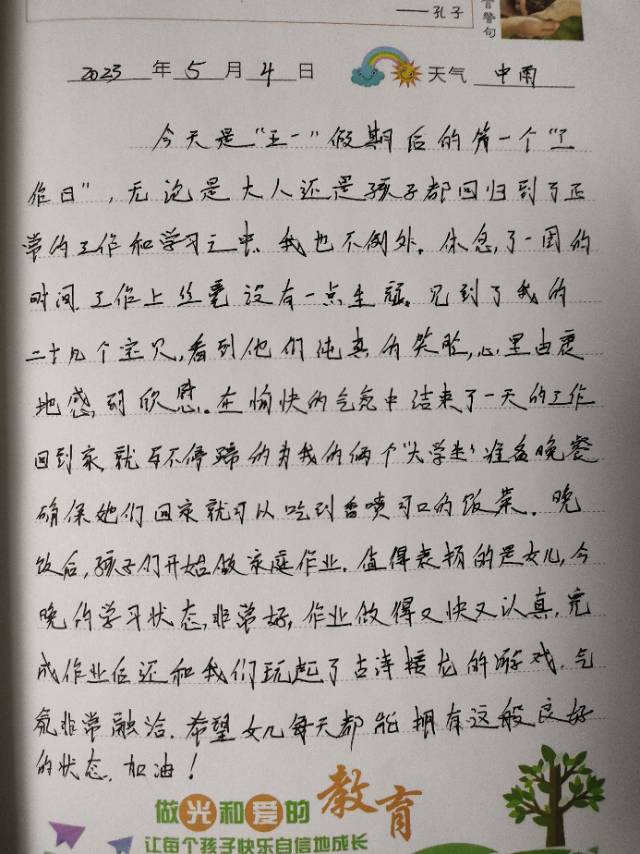 ——孔子
言警句
2023 年 5 月 4 日 天气 中雨
今天是“五一”假期后的第一个“工
作日”，无论是大人还是孩子都回归到了正
常的工作和学习之中。我也不例外。休息了一周的
时间，工作上丝毫没有一点生疏。见到了我的
二十九个宝贝，看到他们纯真的笑脸，心里由衷
地感到欣慰。在愉快的气氛中结束了一天的工作
回到家就马不停蹄的为我的俩个“大学生”准备晚餐
确保她们回家就可以吃到香喷可口的饭菜。晚
饭后，孩子们开始做家庭作业。值得表扬的是女儿，今
晚的学习状态非常好，作业做得又快又认真，完
成作业后还和我们玩起了古诗接龙的游戏，气
氛非常融洽。希望女儿每天都能拥有这般良好
的状态。加油！
做光和爱的教育
让每个孩子快乐自信地成长